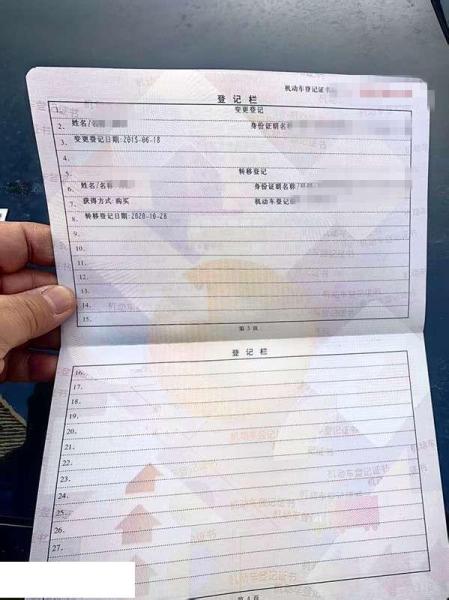 机动车登记证书
登记栏
1. 变更登记
2. 姓名/名称 身份证明名称
3. 变更登记日期:2015-06-18
4.
5. 转移登记
6. 姓名/名称 身份证明名称/
7. 获得方式:购买 机动车登记
8. 转移登记日期:2020-10-28
9.
10.
11.
12.
13.
14.
15.
第3页
登记栏
16.
17.
18.
19.
20.
21.
22.
23.
24.
25.
26.
27.
第4页